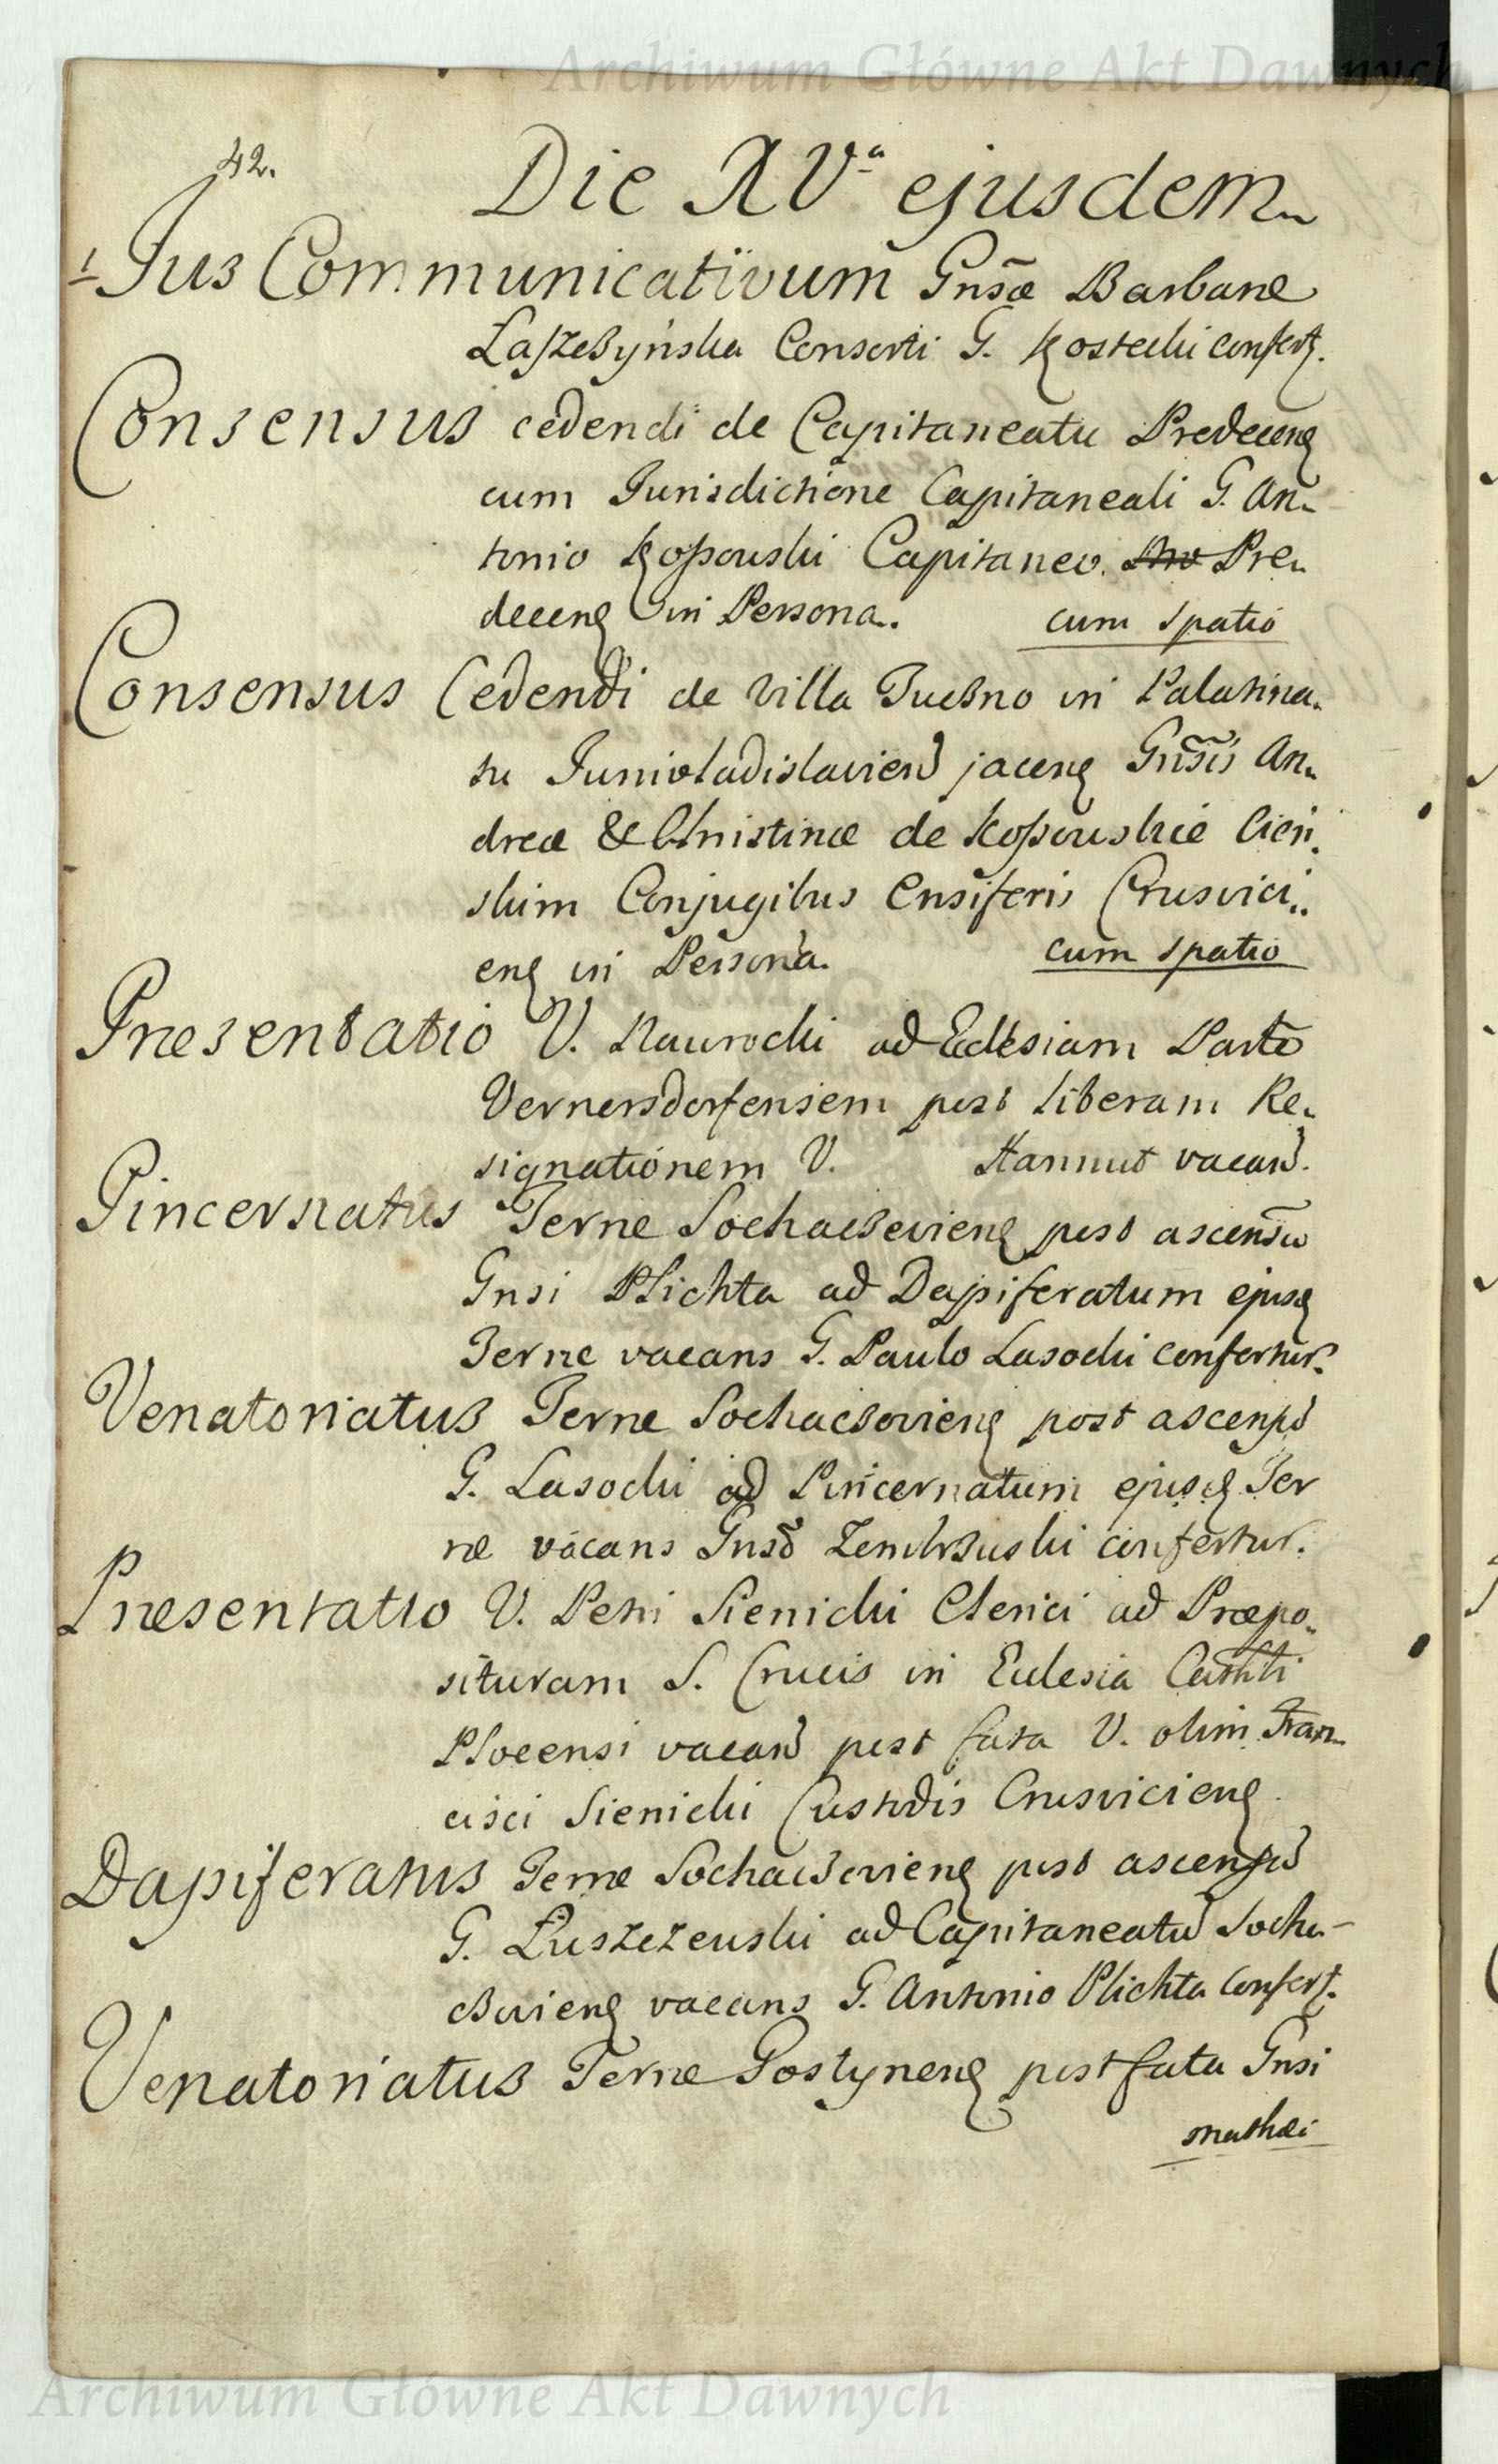 Archiwum Główne Akt Dawnych
42.
Die XVª ejusdem
1 Jus Communicativum Gnsæ Barbaræ
Laszczyńska Consorti G. Kostecki confert.
Consensus cedendi de Capitaneatu Predecen
cum Jurisdictione Capitaneali G. An„
tonio Kossowski Capitaneo Pre„
decen in Persona. cum spatio
Consensus Cedendi de Villa Tuczno in Palatina„
tu Juniwladislavien jacen Gnsis An„
dreæ & Christinæ de Kossowskie Cien„
skim Conjugibus Ensiferis Crusvici„
en in Persona. cum spatio
Præsentatio V. Nawrocki ad Ecclesiam Parlẽ
Vernersdorfensem post liberam Re„
signationem V. Hannut vacan.
Pincernatus Terræ Sochaczevien post ascensũ
Gnsi Plichta ad Dapiferatum ejusd
Terræ vacans G. Paulo Lasocki confertur.
Venatoriatus Terræ Sochaczovien post ascensũ
G. Lasocki ad Pincernatum ejusd Ter
ræ vacans Gnso Zembrzuski confertur.
Præsentatio V. Petri Sienicki Clerici ad Præpo„
situram S. Crucis in Eclesia Cathli
Plocensi vacan post fata V. olim Fran„
cisci Sienicki Custodis Crusvicien
Dapiferatus Terræ Sochaczovien post ascensũ
G. Łuszczewski ad Capitaneatũ Socha-
czovien vacans G. Antonio Plichta confert.
Venatoriatus Terræ Gostynen post fata Gnsi
Mathæi
Archiwum Główne Akt Dawnych